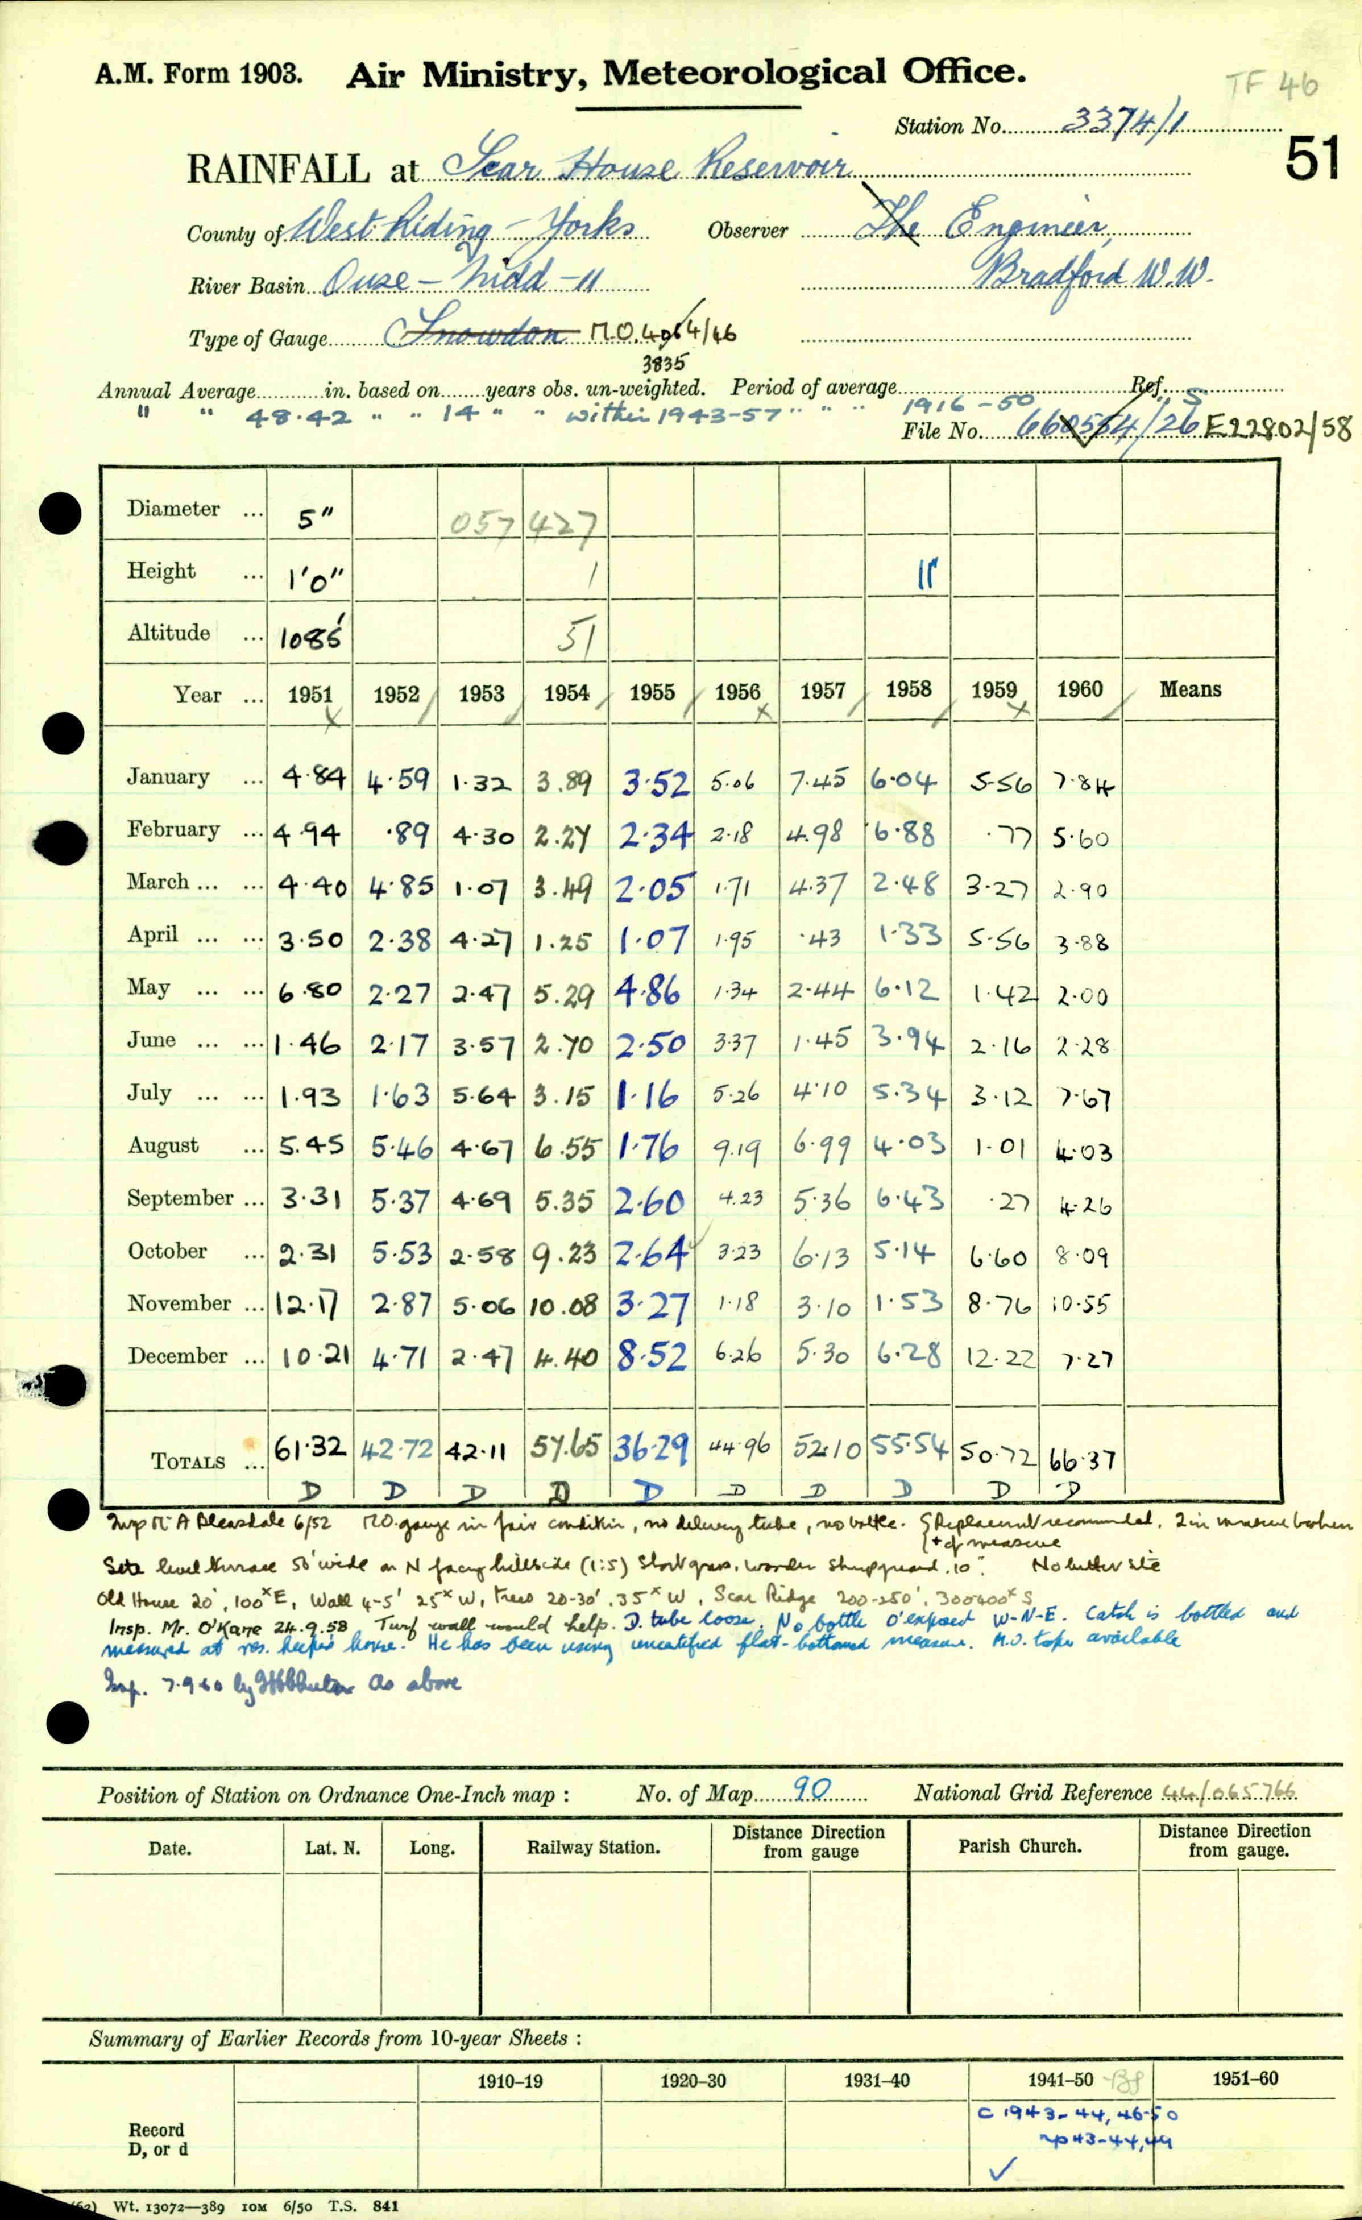 A.M. Form 1903. Air Ministry, Meteorological Office.
TF 46
Station No. 3374/1
51
RAINFALL at Scar House Reservoir
County of West Riding - Yorks Observer The Engineer,
River Basin Ouse - Nidd - 11 Bradford W.W.
Type of Gauge Snowdon M.O. 4064/46
3835
Annual Average in. based on years obs. un-weighted. Period of average Ref. S
" " 48.42 " " 14 " " within 1943-57 " " " 1916-50
File No. 660554/26 E22802/58
Diameter ... 5" 057 427
Height ... 1'0" 1 11
Altitude ... 1085' 51
Year ... 1951 1952 1953 1954 1955 1956 1957 1958 1959 1960 Means
January ... 4.84 4.59 1.32 3.89 3.52 5.06 7.45 6.04 5.56 7.84
February ... 4.94 .89 4.30 2.27 2.34 2.18 4.98 6.88 .77 5.60
March ... ... 4.40 4.85 1.07 3.49 2.05 1.71 4.37 2.48 3.27 2.90
April ... ... 3.50 2.38 4.27 1.25 1.07 1.95 .43 1.33 5.56 3.88
May ... ... 6.80 2.27 2.47 5.29 4.86 1.34 2.44 6.12 1.42 2.00
June ... ... 1.46 2.17 3.57 2.70 2.50 3.37 1.45 3.94 2.16 2.28
July ... ... 1.93 1.63 5.64 3.15 1.16 5.26 4.10 5.34 3.12 7.67
August ... 5.45 5.46 4.67 6.55 1.76 9.19 6.99 4.03 1.01 4.03
September ... 3.31 5.37 4.69 5.35 2.60 4.23 5.36 6.43 .27 4.26
October ... 2.31 5.53 2.58 9.23 2.64 3.23 6.13 5.14 6.60 8.09
November ... 12.17 2.87 5.06 10.08 3.27 1.18 3.10 1.53 8.76 10.55
December ... 10.21 4.71 2.47 4.40 8.52 6.26 5.30 6.28 12.22 7.27
TOTALS ... 61.32 42.72 42.11 57.65 36.29 44.96 52.10 55.54 50.72 66.37
D D D D D D D D D D
Insp Mr A Bleasdale 6/52 M.O. gauge in fair condition, no delivery tube, no bottle. { Replacement recommended. 2in measure broken
+ of measure
Site level terrace 50' wide on N facing hillside (1:5) Short grass, wooden sheepguard, 10". No better site
Old House 20', 100ˣE, Wall 4-5' 25ˣ W, Trees 20-30', 35ˣ W, Scar Ridge 200-250', 300400ˣ S
Insp. Mr. O'Kane 24.9.58 Turf wall would help. D. tube loose. No bottle O'exposed W-N-E. Catch is bottled and
measured at res. keeper's house. He has been using uncertified flat-bottomed measure. M.O. taper available
Insp. 7.9.60 by as above
Position of Station on Ordnance One-Inch map : No. of Map 90 National Grid Reference 44/065766
Date. Lat. N. Long. Railway Station. Distance Direction from gauge Parish Church. Distance Direction from gauge.
Summary of Earlier Records from 10-year Sheets :
1910-19 1920-30 1931-40 1941-50 1951-60
Record
D, or d
C 1943-44, 46-50
np 43-44, 49
✓
Wt. 13072—389 10M 6/50 T.S. 841